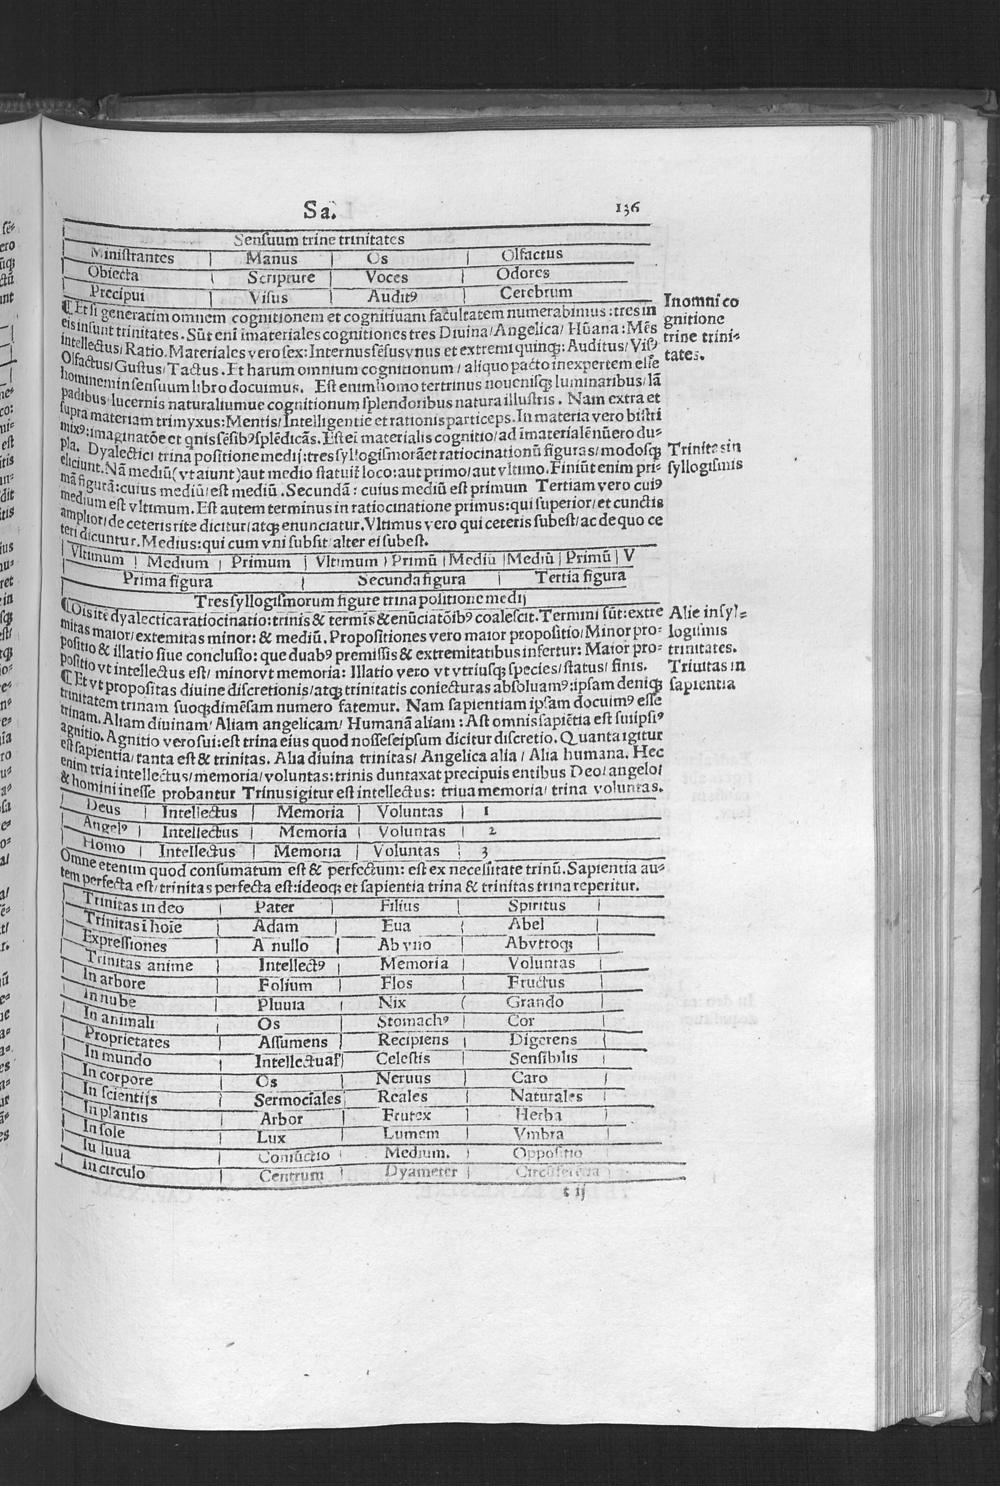 Sa. 136
Sensuum trine trinitates
Ministrantes | Manus | Os | Olfactus
Obiecta | Scripture | Voces | Odores
Precipui | Visus | Auditꝰ | Cerebrum
¶Etsi generatim omnem cognitionem et cognitiuam facultatem numerabimus: tres in
eis insunt trinitates. Sūt eni īmateriales cognitiones tres Diuina/Angelica/Hūana: Mēs
intellectus/Ratio. Materiales vero sex: Internus sēsus vnus et extremi quinqꝫ: Auditus/Visꝰ
Olfactus/Gustus/Tactus. Et harum omnium cognitionum/aliquo pacto inexpertem esse
hominem in sensuum libro docuimus. Est enim homo tertrinus nouenisqꝫ luminaribus/lā
padibus lucernis naturaliumue cognitionum splendoribus natura illustris. Nam extra et
supra materiam trimyxus: Mentis/Intelligentie et rationis particeps. In materia vero bistri
mixꝰ: imaginatōe et qnis sēsibꝰ splēdicās. Est ei materialis cognitio/ad īmaterialē nūero du-
pla. Dyalectici trina positione medij: tres syllogismorū aēt ratiocinationū figuras/modosqꝫ
eliciunt. Nā mediū (vt aiunt) aut medio statuit loco: aut primo/aut vltimo. Finiūt enim pri-
mā figurā: cuius mediū/est mediū. Secundā: cuius mediū est primum Tertiam vero cuiꝰ
medium est vltimum. Est autem terminus in ratiocinatione primus: qui superior/et cunctis
amplior/de ceteris rite dicitur/atqꝫ enunciatur. Vltimus vero qui ceteris subest/ac de quo ce
teri dicuntur. Medius: qui cum vni subsit/alter ei subest.
Vltimum | Medium | Primum | Vltimum | Primū | Mediū | Mediū | Primū | V
Prima figura | Secunda figura | Tertia figura
Tres syllogismorum figure trina positione medij
¶Ois ite dyalectica ratiocinatio: trinis & termīs & enūciatōibꝰ coalescit. Termini sūt: extre
mitas maior/extemitas minor: & mediū. Propositiones vero maior propositio/Minor pro-
positio & illatio siue conclusio: que duabꝰ premissis & extremitatibus infertur: Maior pro-
positio vt intellectus est/minor vt memoria: Illatio vero vt vtriusqꝫ species/status/finis.
¶Et vt propositas diuine discretionis/atqꝫ trinitatis coniecturas absoluamꝰ: ipsam deniqꝫ
trinitatem trinam suoqꝫ dimēsam numero fatemur. Nam sapientiam ipsam docuimꝰ esse
trinam. Aliam diuinam/Aliam angelicam/Humanā aliam: Ast omnis sapiētia est sui ipsiꝰ
agnitio. Agnitio vero sui: est trina eius quod nosse seipsum dicitur discretio. Quanta igitur
est sapientia/tanta est & trinitas. Alia diuina trinitas/Angelica alia/Alia humana. Hec
enim tria intellectus/memoria/voluntas: trinis duntaxat precipuis entibus Deo/angeloi
& homini inesse probantur Trinus igitur est intellectus: triua memoria/trina voluntas.
Deus | Intellectus | Memoria | Voluntas | 1
Angelꝰ | Intellectus | Memoria | Voluntas | 2
Homo | Intellectus | Memoria | Voluntas | 3
Omne etenim quod consumatum est & perfectum: est ex necessitate trinū. Sapientia au-
tem perfecta est/trinitas perfecta est: ideoqꝫ et sapientia trina & trinitas trina reperitur.
Trinitas in deo | Pater | Filius | Spiritus
Trinitas ī hoīe | Adam | Eua | Abel
Expressiones | A nullo | Ab vno | Ab vtroqꝫ
Trinitas anime | Intellectꝰ | Memoria | Voluntas
In arbore | Folium | Flos | Fructus
In nube | Pluuia | Nix | Grando
In animali | Os | Stomachꝰ | Cor
Proprietates | Assumens | Recipiens | Digerens
In mundo | Intellectuas | Celestis | Sensibilis
In corpore | Os | Neruus | Caro
In scientijs | Sermociales | Reales | Naturales
In plantis | Arbor | Frutex | Herba
In sole | Lux | Lumem | Vmbra
In luua | Coniūctio | Medium. | Oppositio
In circulo | Centrum | Dyameter | Circūferētia
t ij
In omni co
gnitione
trine trini-
tates.
Trinitas in
syllogismis
Alie in syl-
logismis
trinitates.
Triuitas in
sapientia